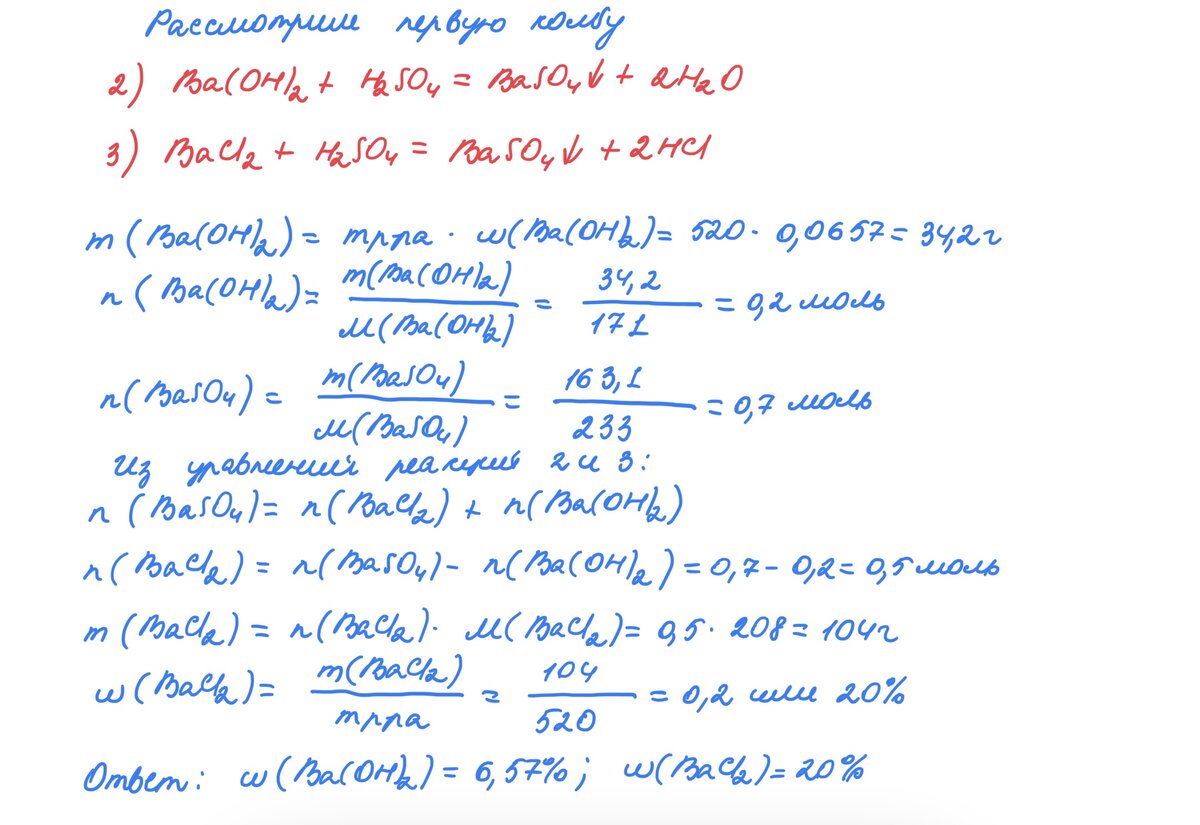 Рассмотрим первую колбу
2) Ba(OH)₂ + H₂SO₄ = BaSO₄↓ + 2H₂O
3) BaCl₂ + H₂SO₄ = BaSO₄↓ + 2HCl
m(Ba(OH)₂) = mр-ра · ω(Ba(OH)₂) = 520 · 0,0657 = 34,2г
n(Ba(OH)₂) = m(Ba(OH)₂) / M(Ba(OH)₂) = 34,2 / 171 = 0,2 моль
n(BaSO₄) = m(BaSO₄) / M(BaSO₄) = 163,1 / 233 = 0,7 моль
Из уравнений реакций 2 и 3:
n(BaSO₄) = n(BaCl₂) + n(Ba(OH)₂)
n(BaCl₂) = n(BaSO₄) - n(Ba(OH)₂) = 0,7 - 0,2 = 0,5 моль
m(BaCl₂) = n(BaCl₂) · M(BaCl₂) = 0,5 · 208 = 104г
ω(BaCl₂) = m(BaCl₂) / mр-ра = 104 / 520 = 0,2 или 20%
Ответ: ω(Ba(OH)₂) = 6,57%; ω(BaCl₂) = 20%